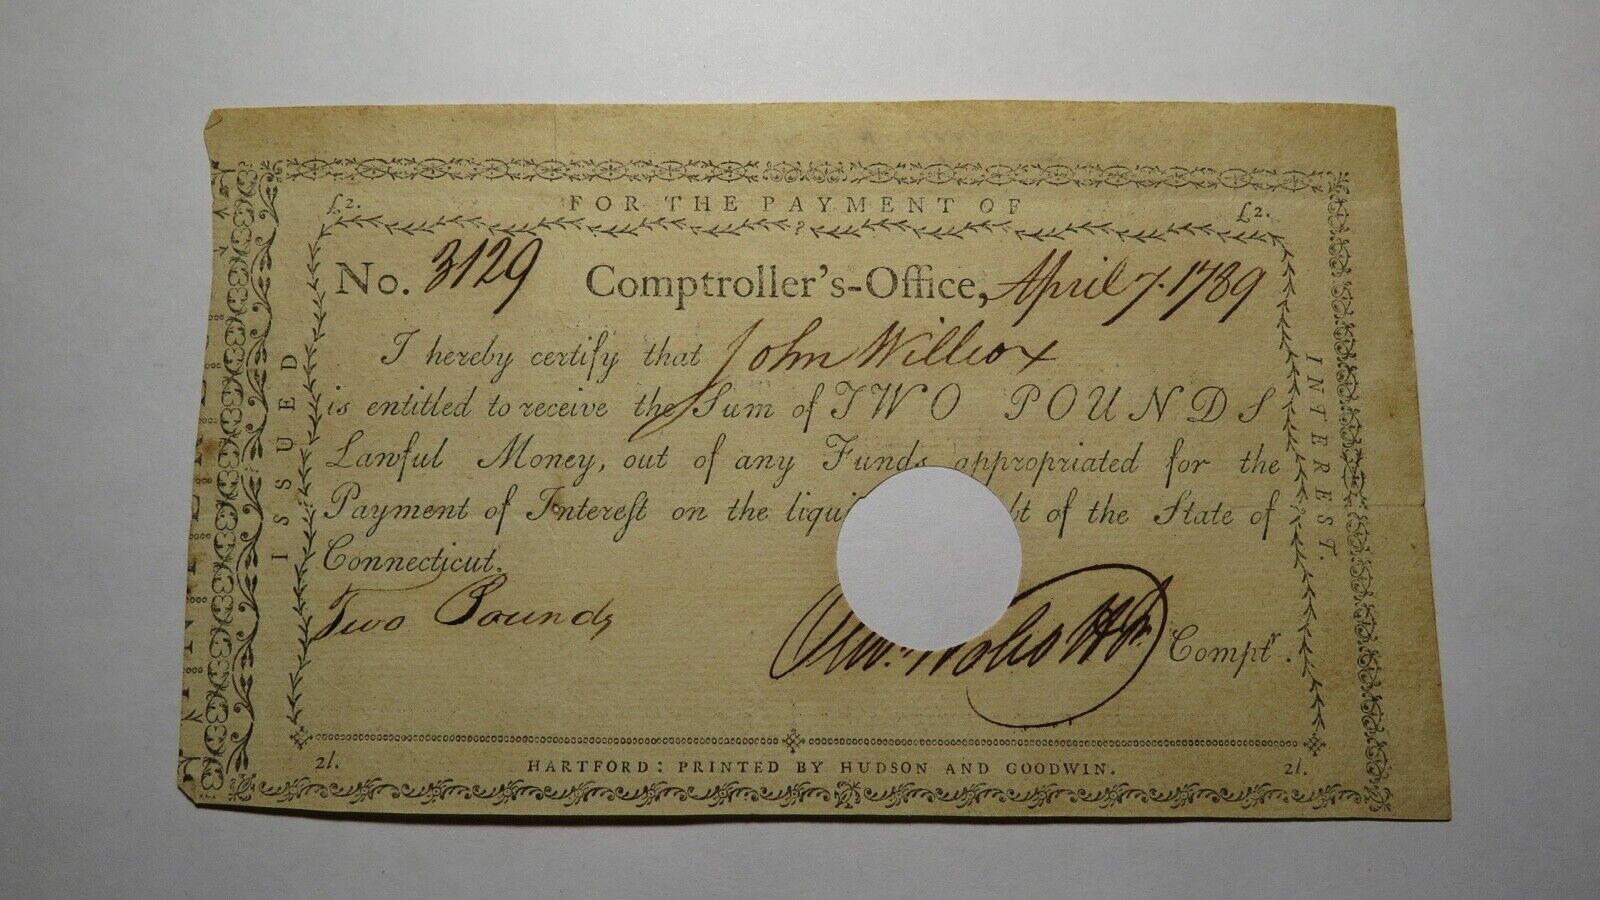 £2. FOR THE PAYMENT OF £2.
No. 3129 Comptroller's-Office, April 7. 1789
I hereby certify that John Willcox
is entitled to receive the Sum of TWO POUNDS
Lawful Money, out of any Funds appropriated for the
Payment of Interest on the liqui bt of the State of
Connecticut.
Two Pounds
Compr.
ISSUED
INTEREST.
2l. HARTFORD: PRINTED BY HUDSON AND GOODWIN. 2l.